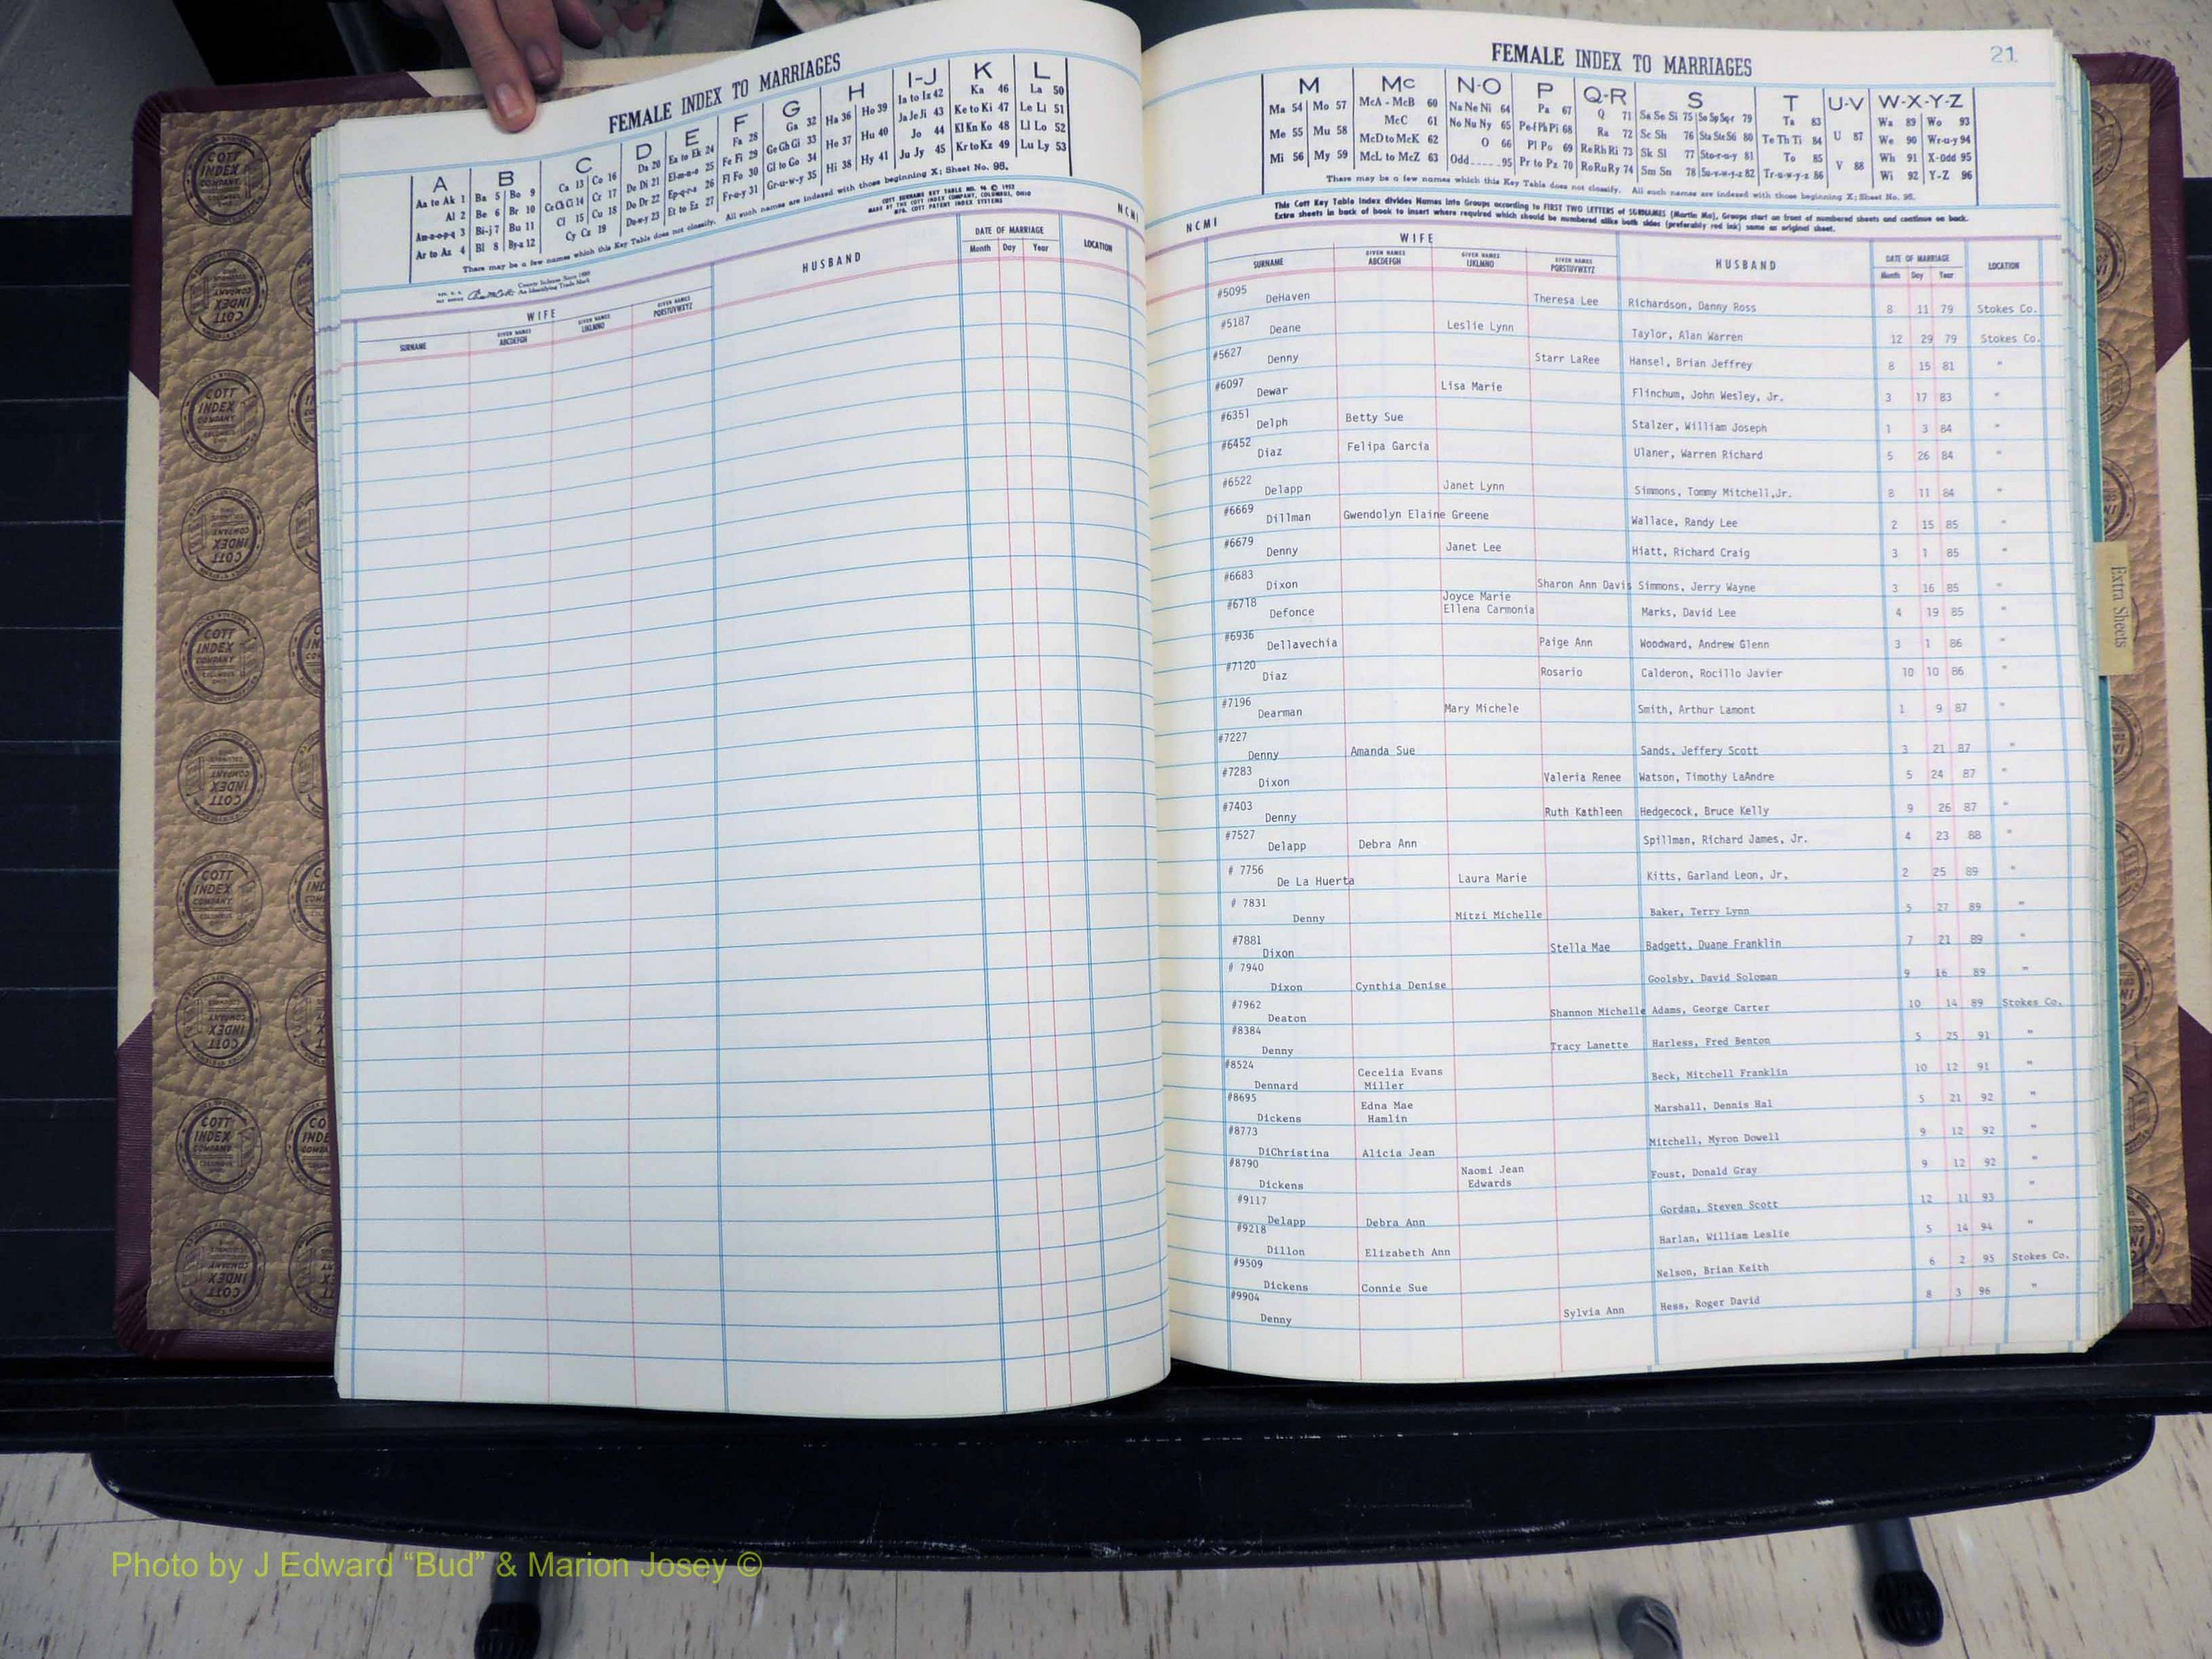 FEMALE INDEX TO MARRIAGES
A B C D E F G H I-J K L
Aa to Ak 1 Ba 5 Bo 9 Ca 13 Co 16 Da 20 Ea to Ek 24 Fa 28 Ga 32 Ha 36 Ho 39 Ia to Iz 42 Ka 46 La 50
Al 2 Be 6 Br 10 Ce Ch Ci 14 Cr 17 De Di 21 El-m-n-o 25 Fe Fi 29 Ge Gh Gi 33 He 37 Hu 40 Ja Je Ji 43 Ke to Ki 47 Le Li 51
Am-n-o-p-q 3 Bi-j 7 Bu 11 Cl 15 Cu 18 Do Dr 22 Ep-q-r-s 26 Fl Fo 30 Gl to Go 34 Hi 38 Hy 41 Jo 44 Kl Kn Ko 48 Ll Lo 52
Ar to Az 4 Bl 8 By-z 12 Cy Cz 19 Du-w-y 23 Et to Ez 27 Fr-u-y 31 Gr-u-w-y 35 Ju Jy 45 Kr to Kz 49 Lu Ly 53
There may be a few names which this Key Table does not classify. All such names are indexed with those beginning X; Sheet No. 95.
COTT SURNAME KEY TABLE NO. 96 © 1952
MADE BY THE COTT INDEX COMPANY, COLUMBUS, OHIO
MFG. COTT PATENT INDEX SYSTEMS
NCMI
County Indexes Since 1888
An Identifying Trade Mark
WIFE HUSBAND DATE OF MARRIAGE LOCATION
SURNAME GIVEN NAMES ABCDEFGH GIVEN NAMES IJKLMNO GIVEN NAMES PQRSTUVWXYZ Month Day Year
FEMALE INDEX TO MARRIAGES 21
M Mc N-O P Q-R S T U-V W-X-Y-Z
Ma 54 Mo 57 McA - McB 60 Na Ne Ni 64 Pa 67 Q 71 Sa Se Si 75 So Sp Sq-r 79 Ta 83 Wa 89 Wo 93
Me 55 Mu 58 McC 61 No Nu Ny 65 Pe-f Ph Pi 68 Ra 72 Sc Sh 76 Sta Ste Sti 80 Te Th Ti 84 U 87 We 90 Wr-u-y 94
Mi 56 My 59 McD to McK 62 O 66 Pl Po 69 Re Rh Ri 73 Sk Sl 77 Sto-r-u-y 81 To 85 V 88 Wh 91 X-Odd 95
McL to McZ 63 Odd 95 Pr to Pz 70 Ro Ru Ry 74 Sm Sn 78 Su-v-w-y-z 82 Tr-u-w-y-z 86 Wi 92 Y-Z 96
There may be a few names which this Key Table does not classify. All such names are indexed with those beginning X; Sheet No. 95.
This Cott Key Table Index divides Names into Groups according to FIRST TWO LETTERS of SURNAMES (Martin Ma), Groups start on front of numbered sheets and continue on back.
Extra sheets in back of book to insert where required which should be numbered alike both sides (preferably red ink) same as original sheet.
NCMI
WIFE HUSBAND DATE OF MARRIAGE LOCATION
SURNAME GIVEN NAMES ABCDEFGH GIVEN NAMES IJKLMNO GIVEN NAMES PQRSTUVWXYZ Month Day Year
#5095 DeHaven Theresa Lee Richardson, Danny Ross 8 11 79 Stokes Co.
#5187 Deane Leslie Lynn Taylor, Alan Warren 12 29 79 Stokes Co.
#5627 Denny Starr LaRee Hansel, Brian Jeffrey 8 15 81 "
#6097 Dewar Lisa Marie Flinchum, John Wesley, Jr. 3 17 83 "
#6351 Delph Betty Sue Stalzer, William Joseph 1 3 84 "
#6452 Diaz Felipa Garcia Ulaner, Warren Richard 5 26 84 "
#6522 Delapp Janet Lynn Simmons, Tommy Mitchell,Jr. 8 11 84 "
#6669 Dillman Gwendolyn Elaine Greene Wallace, Randy Lee 2 15 85 "
#6679 Denny Janet Lee Hiatt, Richard Craig 3 1 85 "
#6683 Dixon Sharon Ann Davis Simmons, Jerry Wayne 3 16 85 "
#6718 Defonce Joyce Marie Ellena Carmonia Marks, David Lee 4 19 85 "
#6936 Dellavechia Paige Ann Woodward, Andrew Glenn 3 1 86 "
#7120 Diaz Rosario Calderon, Rocillo Javier 10 10 86 "
#7196 Dearman Mary Michele Smith, Arthur Lamont 1 9 87 "
#7227 Denny Amanda Sue Sands, Jeffery Scott 3 21 87 "
#7283 Dixon Valeria Renee Watson, Timothy LaAndre 5 24 87 "
#7403 Denny Ruth Kathleen Hedgecock, Bruce Kelly 9 26 87 "
#7527 Delapp Debra Ann Spillman, Richard James, Jr. 4 23 88 "
# 7756 De La Huerta Laura Marie Kitts, Garland Leon, Jr. 2 25 89 "
# 7831 Denny Mitzi Michelle Baker, Terry Lynn 5 27 89 "
#7881 Dixon Stella Mae Badgett, Duane Franklin 7 21 89 "
# 7940 Dixon Cynthia Denise Goolsby, David Soloman 9 16 89 "
#7962 Deaton Shannon Michelle Adams, George Carter 10 14 89 Stokes Co.
#8384 Denny Tracy Lanette Harless, Fred Benton 5 25 91 "
#8524 Dennard Cecelia Evans Miller Beck, Mitchell Franklin 10 12 91 "
#8695 Dickens Edna Mae Hamlin Marshall, Dennis Hal 5 21 92 "
#8773 DiChristina Alicia Jean Mitchell, Myron Dowell 9 12 92 "
#8790 Dickens Naomi Jean Edwards Foust, Donald Gray 9 12 92 "
#9117 Delapp Debra Ann Gordan, Steven Scott 12 11 93 "
#9218 Dillon Elizabeth Ann Harlan, William Leslie 5 14 94 "
#9509 Dickens Connie Sue Nelson, Brian Keith 6 2 95 Stokes Co.
#9904 Denny Sylvia Ann Hess, Roger David 8 3 96 "
Extra Sheets
COTT INDEX COMPANY COLUMBUS OHIO
Photo by J Edward “Bud” & Marion Josey ©